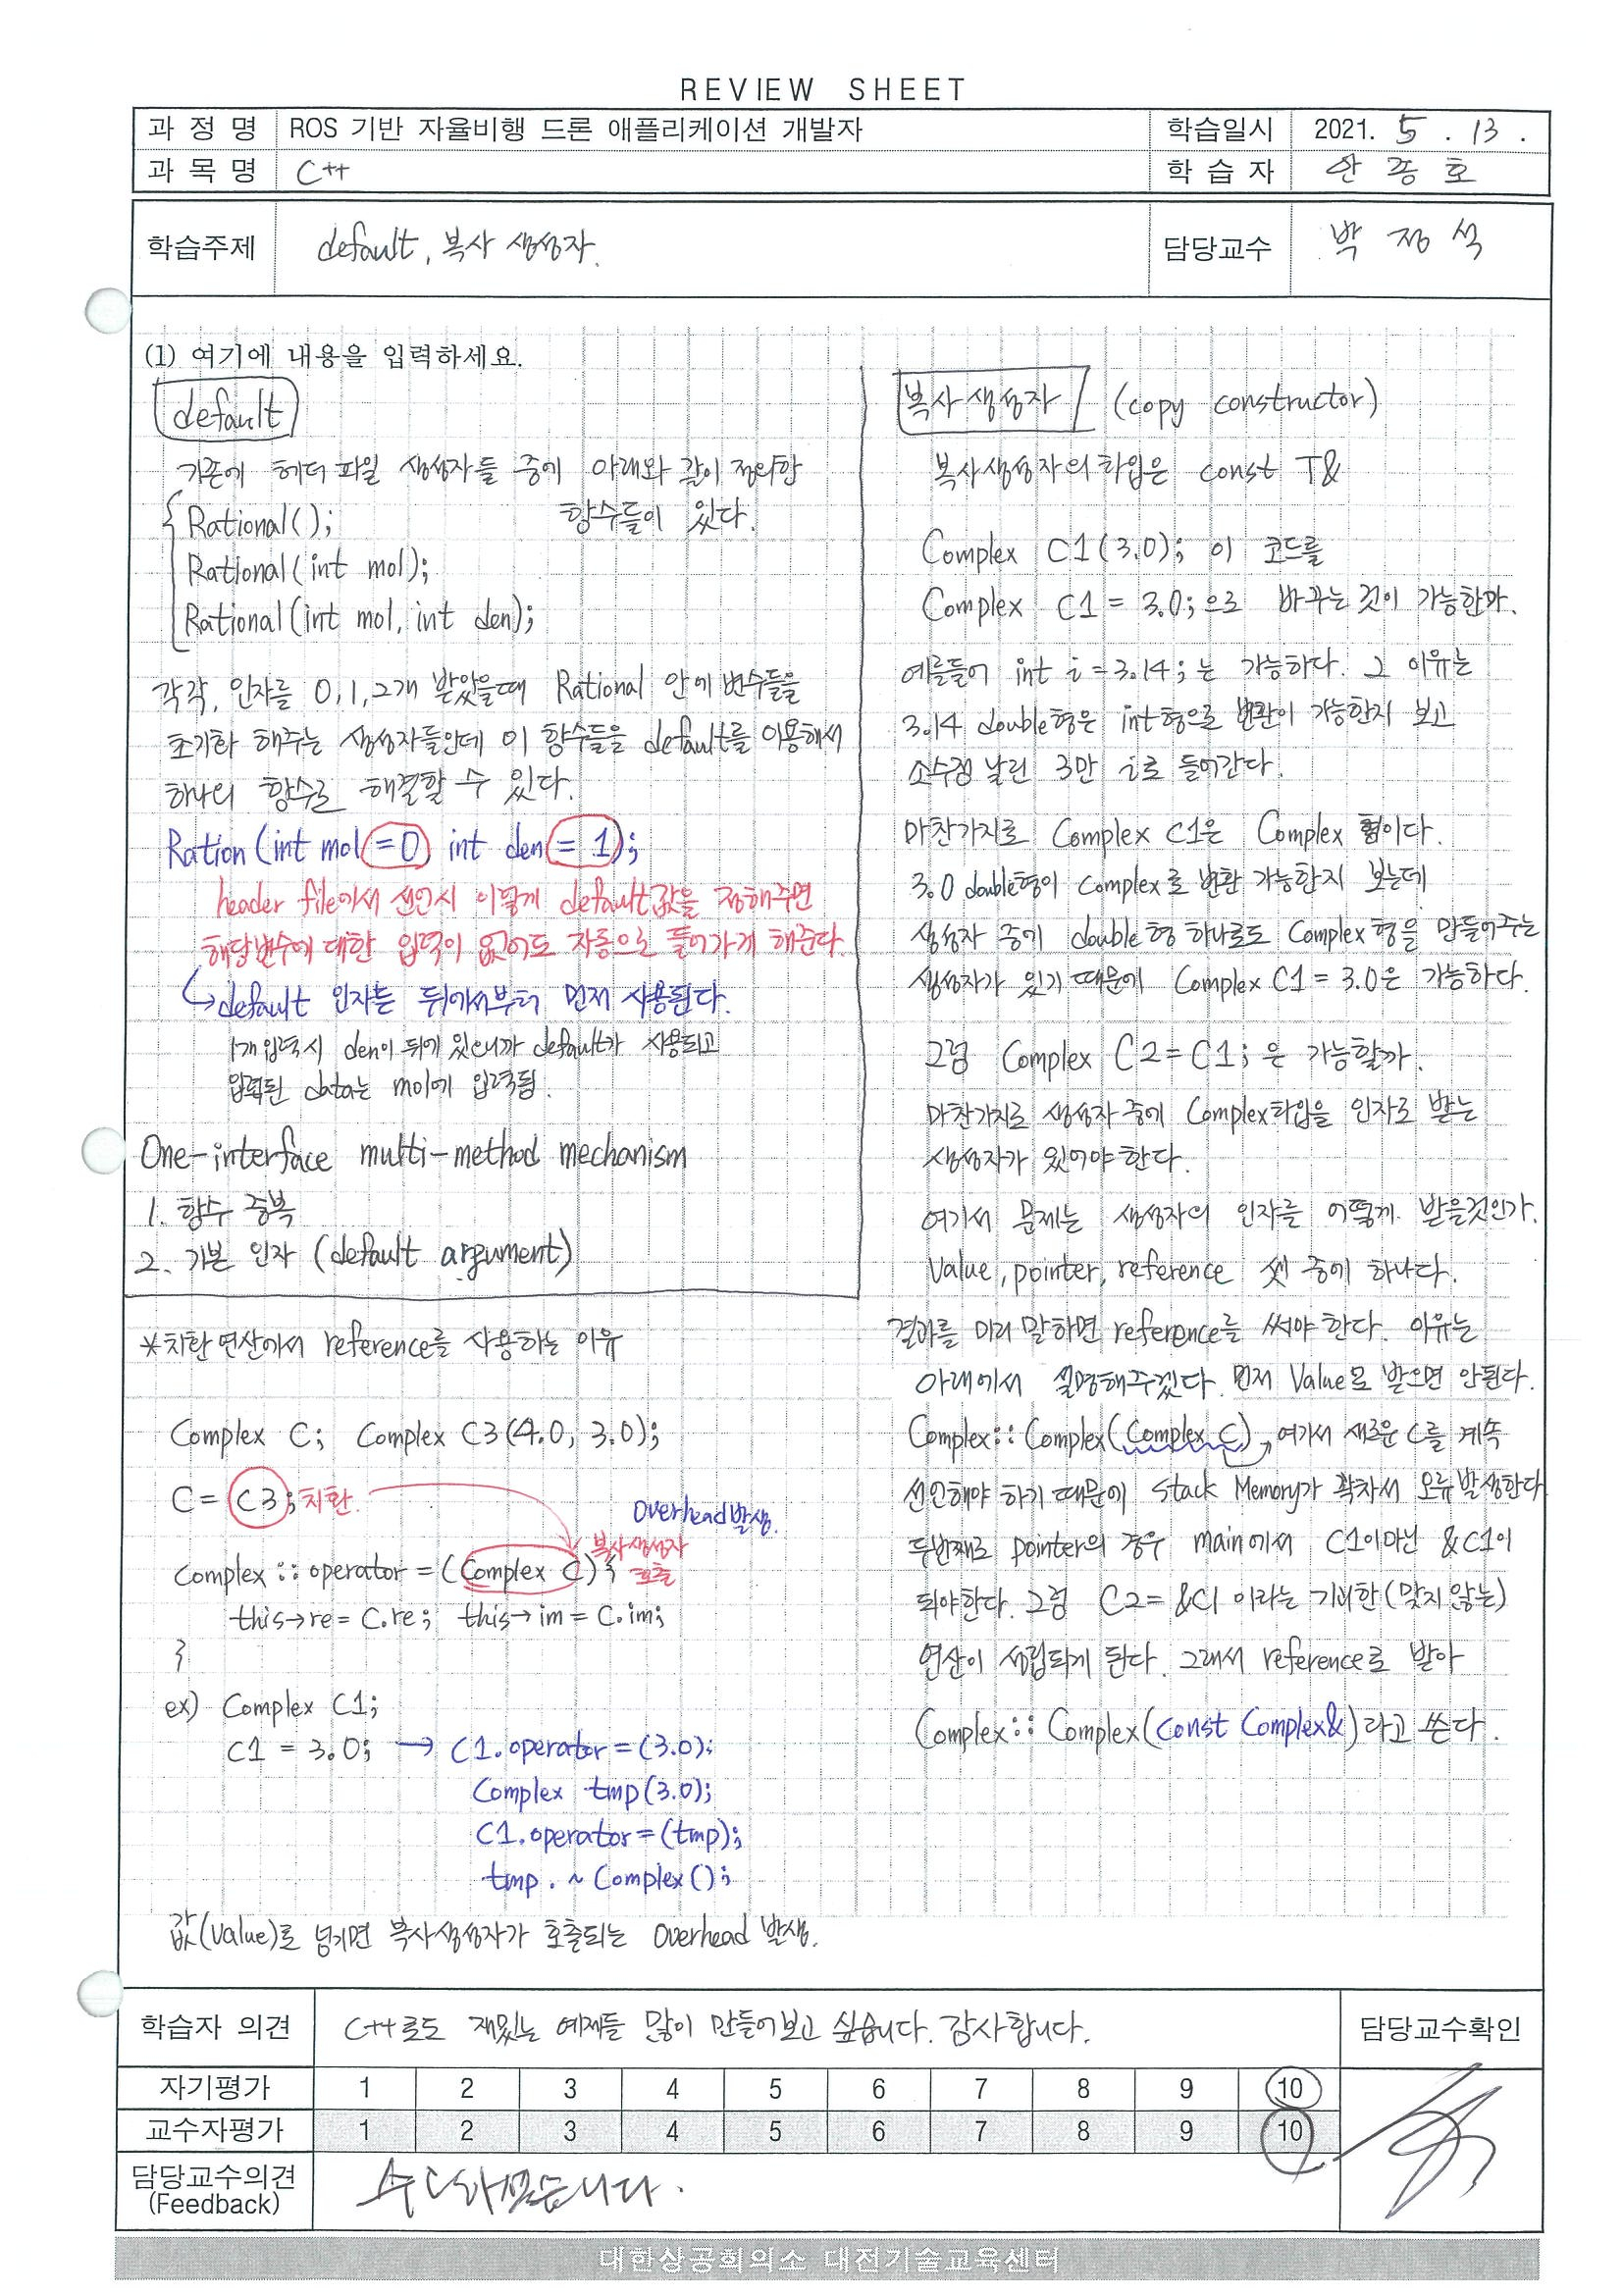 REVIEW SHEET
과 정 명 ROS 기반 자율비행 드론 애플리케이션 개발자 학습일시 2021. 5 . 13 .
과 목 명 C++ 학 습 자 안 종 호
학습주제 default, 복사 생성자. 담당교수 박 정 석
(1) 여기에 내용을 입력하세요.
default
기존에 헤더 파일 생성자들 중에 아래와 같이 정의한
함수들이 있다.
Rational();
Rational(int mol);
Rational(int mol, int den);
각각, 인자를 0,1,2개 받았을때 Rational 안에 변수들을
초기화 해주는 생성자들인데 이 함수들을 default를 이용해서
하나의 함수로 해결할 수 있다.
Ration(int mol =0, int den = 1);
header file에서 선언시 이렇게 default값을 정해주면
해당변수에 대한 입력이 없어도 자동으로 들어가게 해준다.
↳default 인자는 뒤에서부터 먼저 사용된다.
1개 입력시 den이 뒤에 있으니까 default가 사용되고
입력된 data는 mol에 입력됨.
One-interface multi-method mechanism
1. 함수 중복
2. 기본 인자 (default argument)
*치환 연산에서 reference를 사용하는 이유
Complex C; Complex C3(4.0, 3.0);
C = C3; 치환
Overhead발생.
복사생성자
호출
Complex :: operator = (Complex C) {
this→re = C.re; this→im = C.im;
}
ex) Complex C1;
C1 = 3.0; → C1.operator = (3.0);
Complex tmp(3.0);
C1.operator=(tmp);
tmp. ~ Complex();
값(Value)로 넘기면 복사생성자가 호출되는 Overhead 발생.
복사생성자 (copy constructor)
복사생성자의 타입은 const T&
Complex C1(3.0); 이 코드를
Complex C1 = 3.0;으로 바꾸는 것이 가능한가.
예를들어 int i = 3.14; 는 가능하다. 그 이유는
3.14 double형은 int형으로 변환이 가능한지 보고
소수점 날린 3만 i로 들어간다.
마찬가지로 Complex C1은 Complex 형이다.
3.0 double형이 Complex로 변환 가능한지 보는데
생성자 중에 double형 하나로도 Complex형을 만들어주는
생성자가 있기 때문에 Complex C1 = 3.0은 가능하다.
그럼 Complex C2 = C1; 은 가능할까.
마찬가지로 생성자 중에 Complex타입을 인자로 받는
생성자가 있어야 한다.
여기서 문제는 생성자의 인자를 어떻게 받을것인가.
Value, pointer, reference 셋 중에 하나다.
결과를 미리 말하면 reference를 써야 한다. 이유는
아래에서 설명해주겠다. 먼저 Value로 받으면 안된다.
Complex:: Complex(Complex C) 여기서 새로운 C를 계속
선언해야 하기 때문에 Stack Memory가 꽉차서 오류발생한다
두번째로 pointer의 경우 main에서 C1이아닌 &C1이
되야한다. 그럼 C2 = &C1 이라는 기괴한(맞지 않는)
연산이 성립되게 된다. 그래서 reference로 받아
Complex:: Complex(const Complex&)라고 쓴다.
학습자 의견 C++로도 재밌는 예제들 많이 만들어보고 싶습니다. 감사합니다. 담당교수확인
자기평가 1 2 3 4 5 6 7 8 9 10
교수자평가 1 2 3 4 5 6 7 8 9 10
담당교수의견
(Feedback) 수고하셨습니다.
대한상공회의소 대전기술교육센터